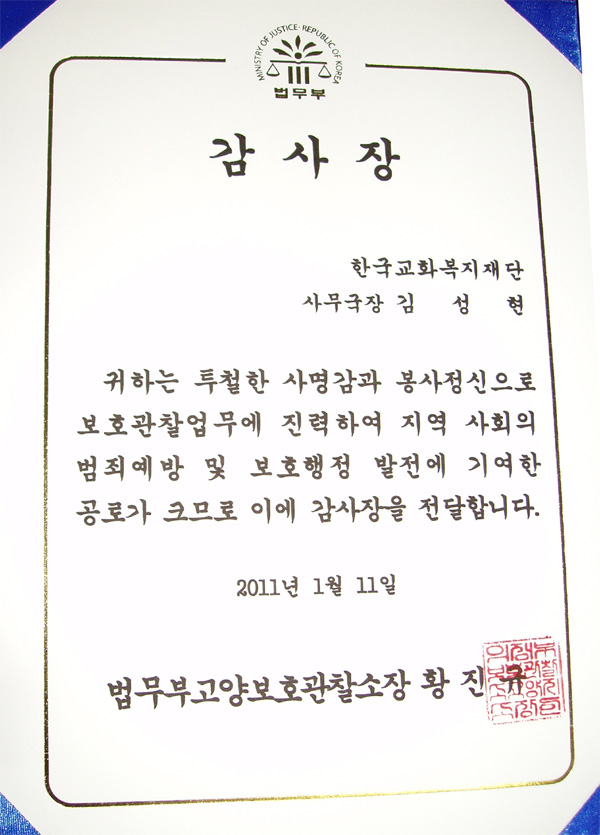 MINISTRY OF JUSTICE·REPUBLIC OF KOREA
법무부
감 사 장
한국교화복지재단
사무국장 김 성 현
귀하는 투철한 사명감과 봉사정신으로
보호관찰업무에 진력하여 지역 사회의
범죄예방 및 보호행정 발전에 기여한
공로가 크므로 이에 감사장을 전달합니다.
2011년 1월 11일
법무부고양보호관찰소장 황 진 규